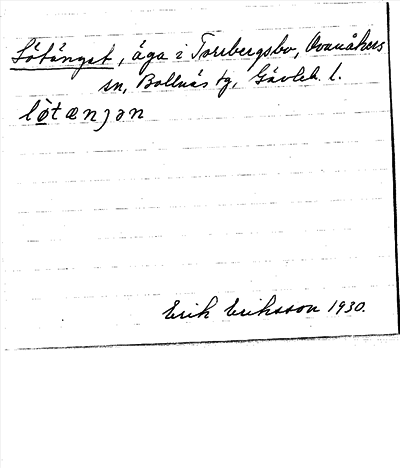 Lötänget, äga i Torrbergsbo, Ovanåkers
sn, Bollnäs tg, Gävleb. l.
Erik Eriksson 1930.